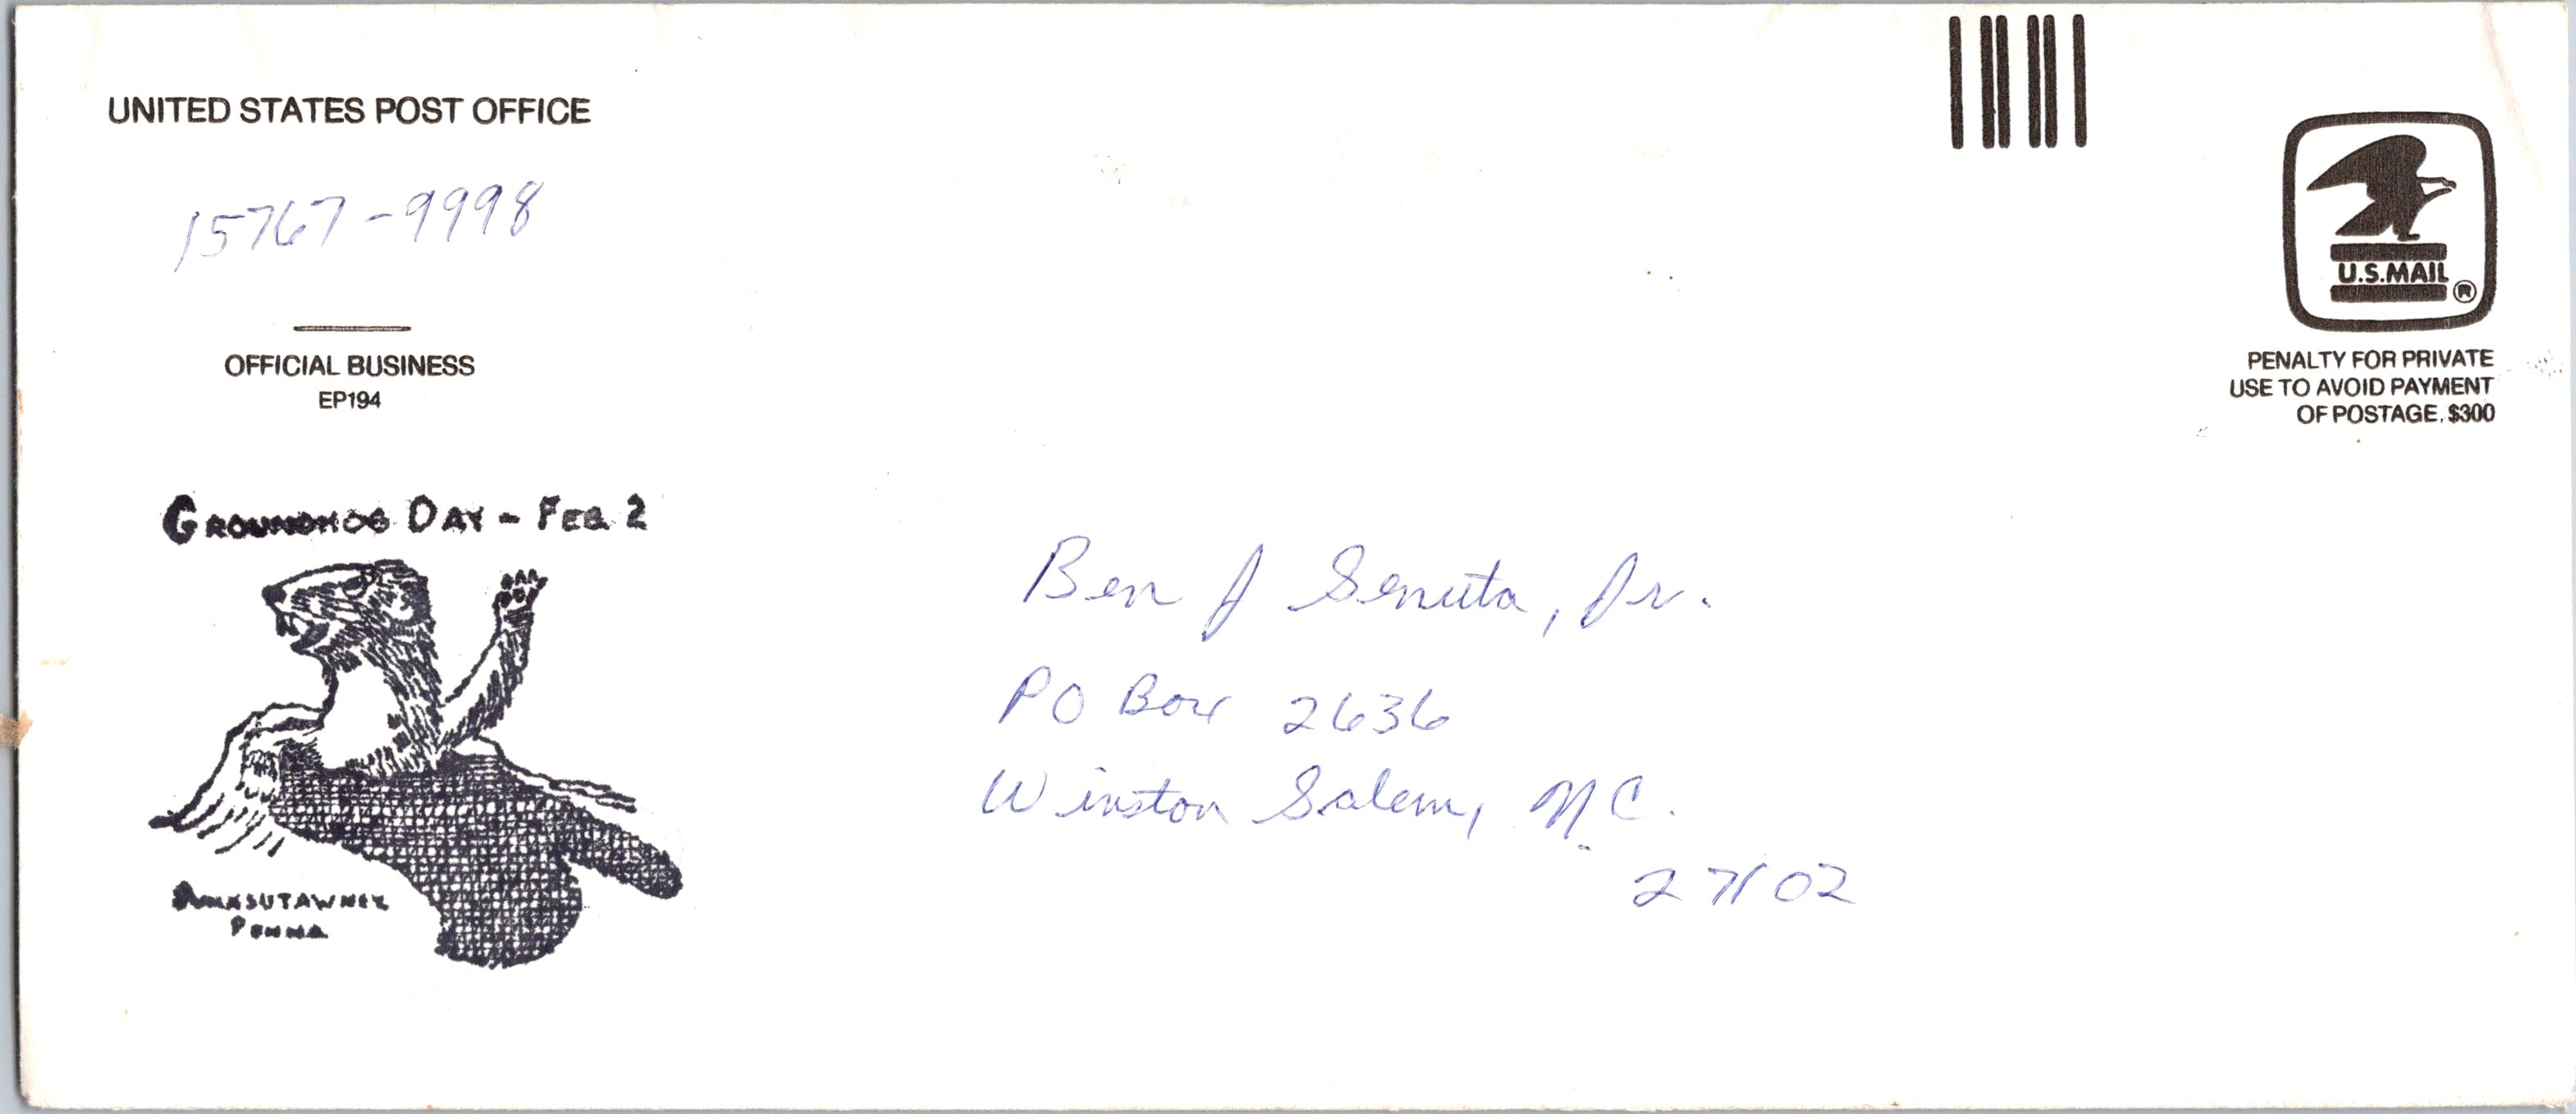 UNITED STATES POST OFFICE
15767-9998
OFFICIAL BUSINESS
EP194
U.S.MAIL ®
PENALTY FOR PRIVATE
USE TO AVOID PAYMENT
OF POSTAGE. $300
GROUNDHOG DAY - FEB. 2
PUNXSUTAWNEY
PENNA
Ben J Senuta, Jr.
PO Box 2636
Winston Salem, N.C.
27102